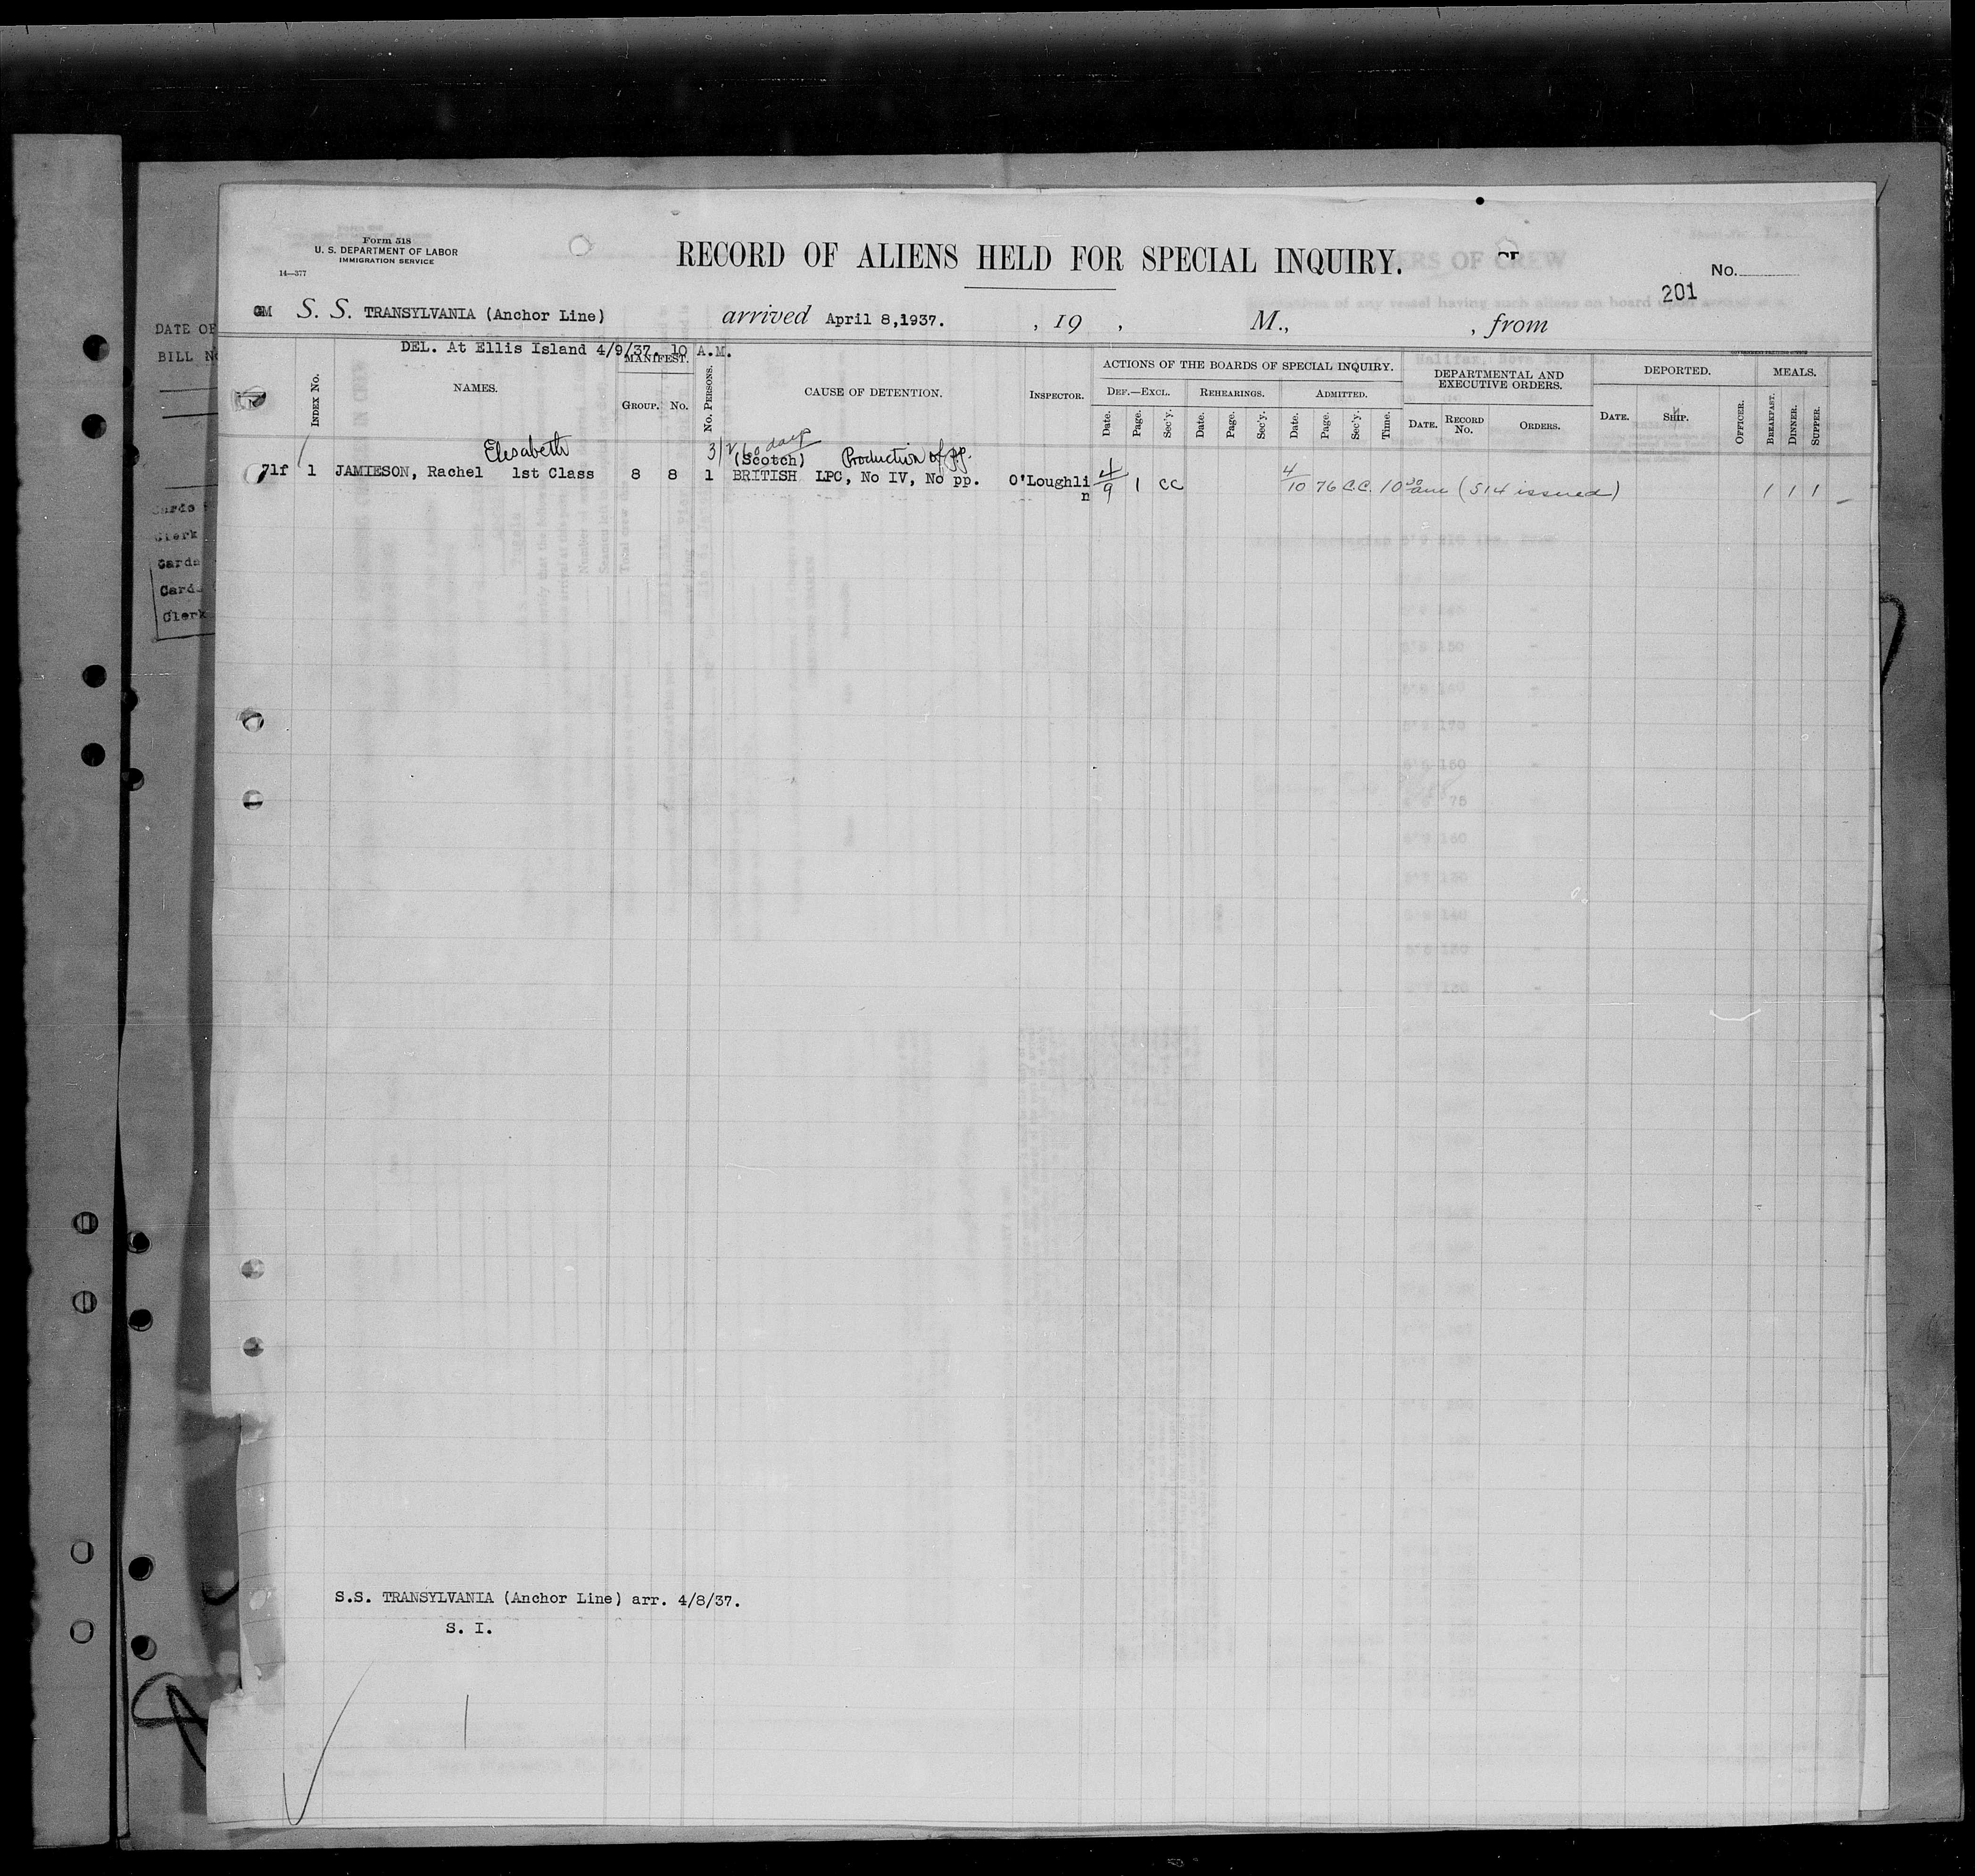 Form 518
U. S. DEPARTMENT OF LABOR
IMMIGRATION SERVICE
14—377
RECORD OF ALIENS HELD FOR SPECIAL INQUIRY.
No.
201
S. S. TRANSYLVANIA (Anchor Line) arrived April 8,1937. , 19 , M., , from
DATE OF
BILL
DEL. At Ellis Island 4/9/37. 10 A.M.
INDEX No.
NAMES.
MANIFEST.
GROUP. No.
No. PERSONS.
CAUSE OF DETENTION.
INSPECTOR.
ACTIONS OF THE BOARDS OF SPECIAL INQUIRY.
DEF.—EXCL. REHEARINGS. ADMITTED.
Date. Page. Sec'y. Date. Page. Sec'y. Date. Page. Sec'y. Time.
DEPARTMENTAL AND EXECUTIVE ORDERS.
DATE. RECORD No. ORDERS.
DEPORTED.
DATE. SHIP. OFFICER.
MEALS.
BREAKFAST. DINNER. SUPPER.
Elisabeth 3/2 60 days
(Scotch) Production of pp.
71f 1 JAMIESON, Rachel 1st Class 8 8 1 BRITISH LPC, No IV, No pp. O'Loughlin 4/9 1 CC 4/10 76 C.C. 10 30 am (514 issued) 1 1 1
Cards
Clerk
Cards
Card
Clerk
S.S. TRANSYLVANIA (Anchor Line) arr. 4/8/37.
S. I.